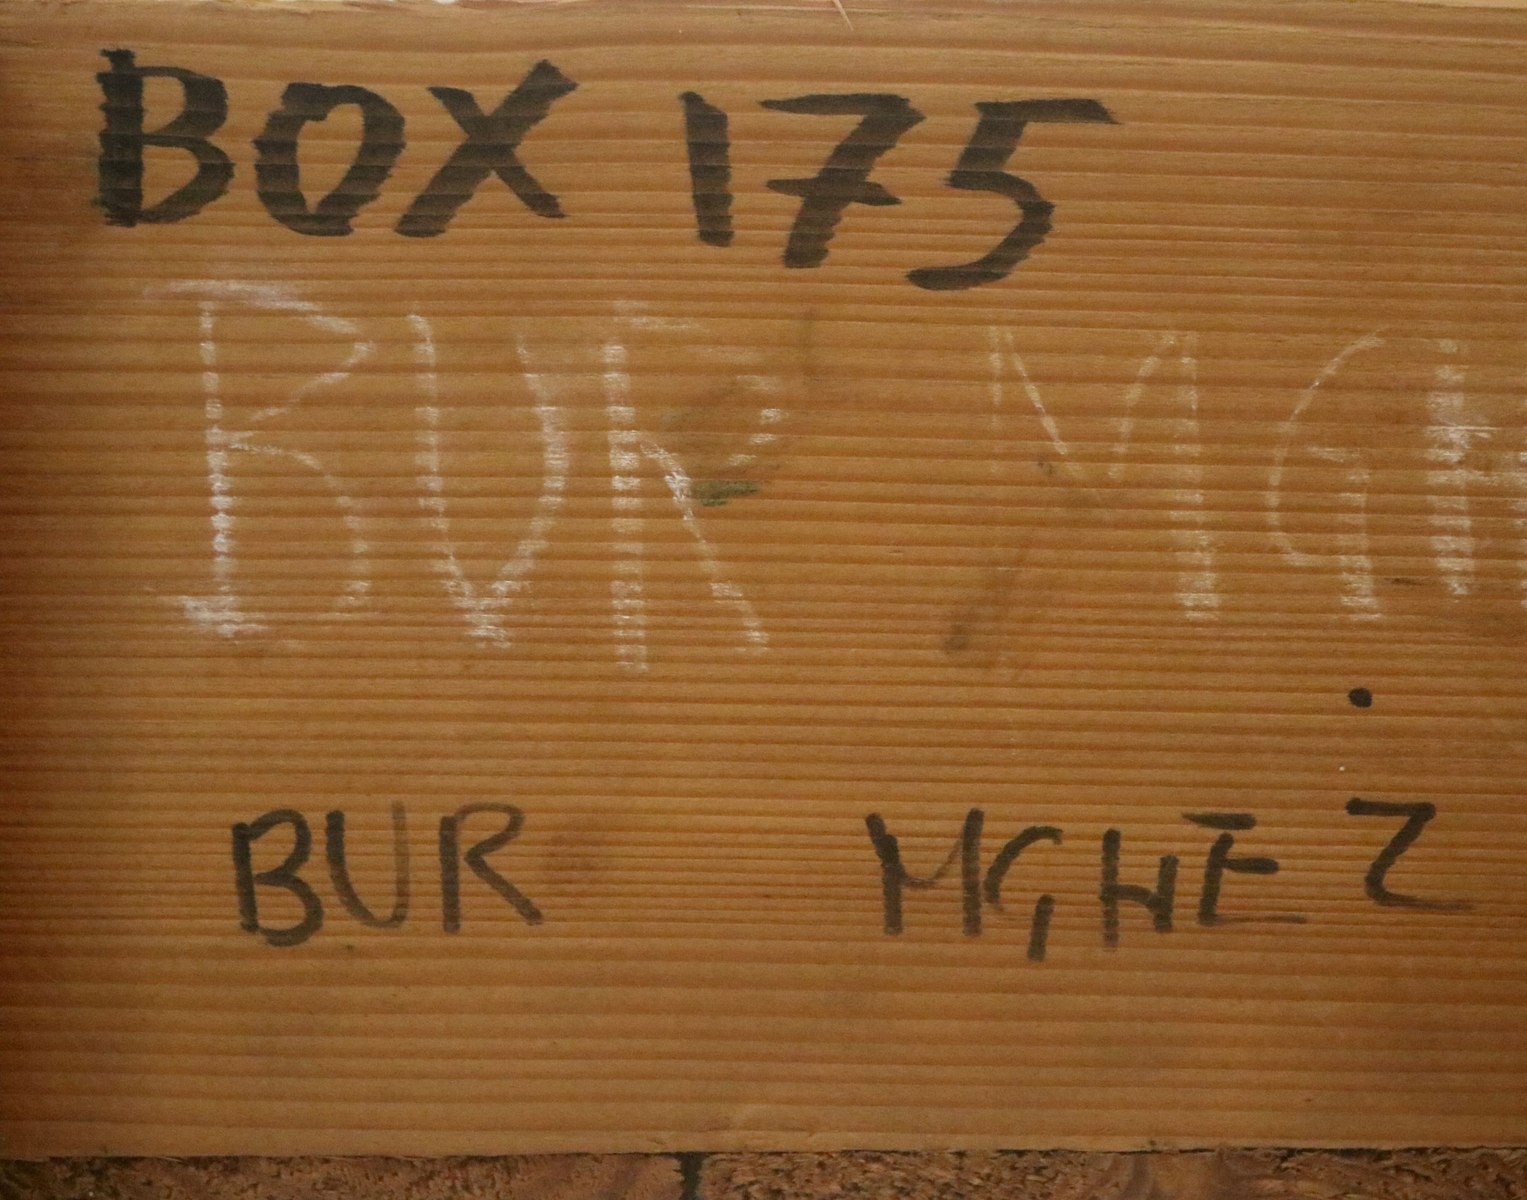 BOX 175
BUR MGH
BUR MGHEZ